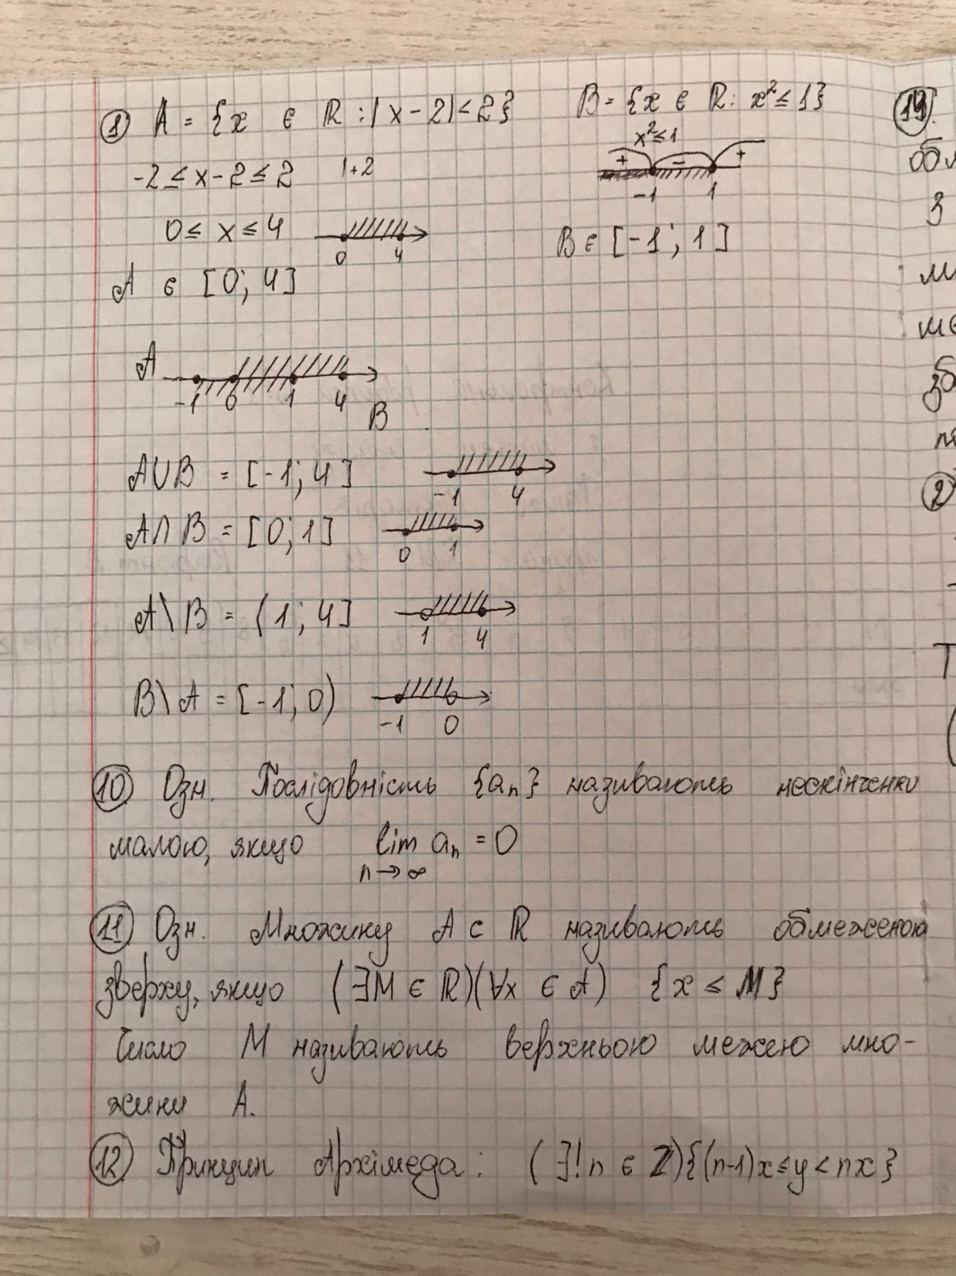 ① A = {x ∈ ℝ : |x-2| ≤ 2} B = {x ∈ ℝ : x² ≤ 1}
x² ≤ 1
-2 ≤ x-2 ≤ 2 |+2 + - +
-1 1
0 ≤ x ≤ 4 0 4 B ∈ [-1; 1]
A ∈ [0; 4]
A -1 0 1 4 B
A∪B = [-1; 4] -1 4
A∩B = [0; 1] 0 1
A\B = (1; 4] 1 4
B\A = [-1; 0) -1 0
⑩ Озн. Послідовність {aₙ} називають нескінченно
малою, якщо lim aₙ = 0
n→∞
⑪ Озн. Множину A ⊂ ℝ називають обмеженою
зверху, якщо (∃M ∈ ℝ)(∀x ∈ A) {x ≤ M}
Число M називають верхньою межею мно-
жини A.
⑫ Принцип Архімеда: (∃! n ∈ ℤ){(n-1)x ≤ y < nx}